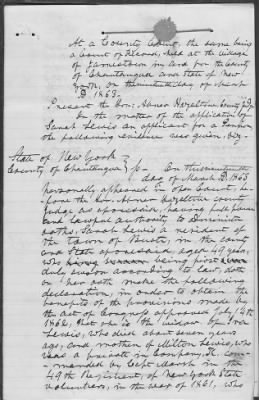 At a County Court, the same being
a Court of Record, held at the village
of Jamestown in and for the County
of Chautauqua and State of New
York, on the nineteenth day of March
1863.
Present the Hon: Abner Hazeltine County Judge
In the matter of the application of
Sarah Lewis an applicant for a Pension
the following evidence was given, viz-
State of New York
County of Chautauqua } ss- On this nineteenth
day of March AD. 1863
personally appeared in open Court, be-
fore the Hon. Abner Hazeltine county
Judge as aforesaid, having full power
and lawful authority to administer
oaths, Sarah Lewis a resident of
the town of Busti, in the county
and State aforesaid, aged 49 years,
who being first
duly sworn according to law, doth
on her oath make the following
declaration, in order to obtain the
benefits of the provisions made by
the act of Congress approved July 14th
1862, that she is the widow of
Lewis, who died about seven years
ago, and mother of Milton Lewis, who
was a private in Company K. com-
manded by Capt Marsh in the
49th Regiment, of New York State
volunteers, in the war of 1861, who